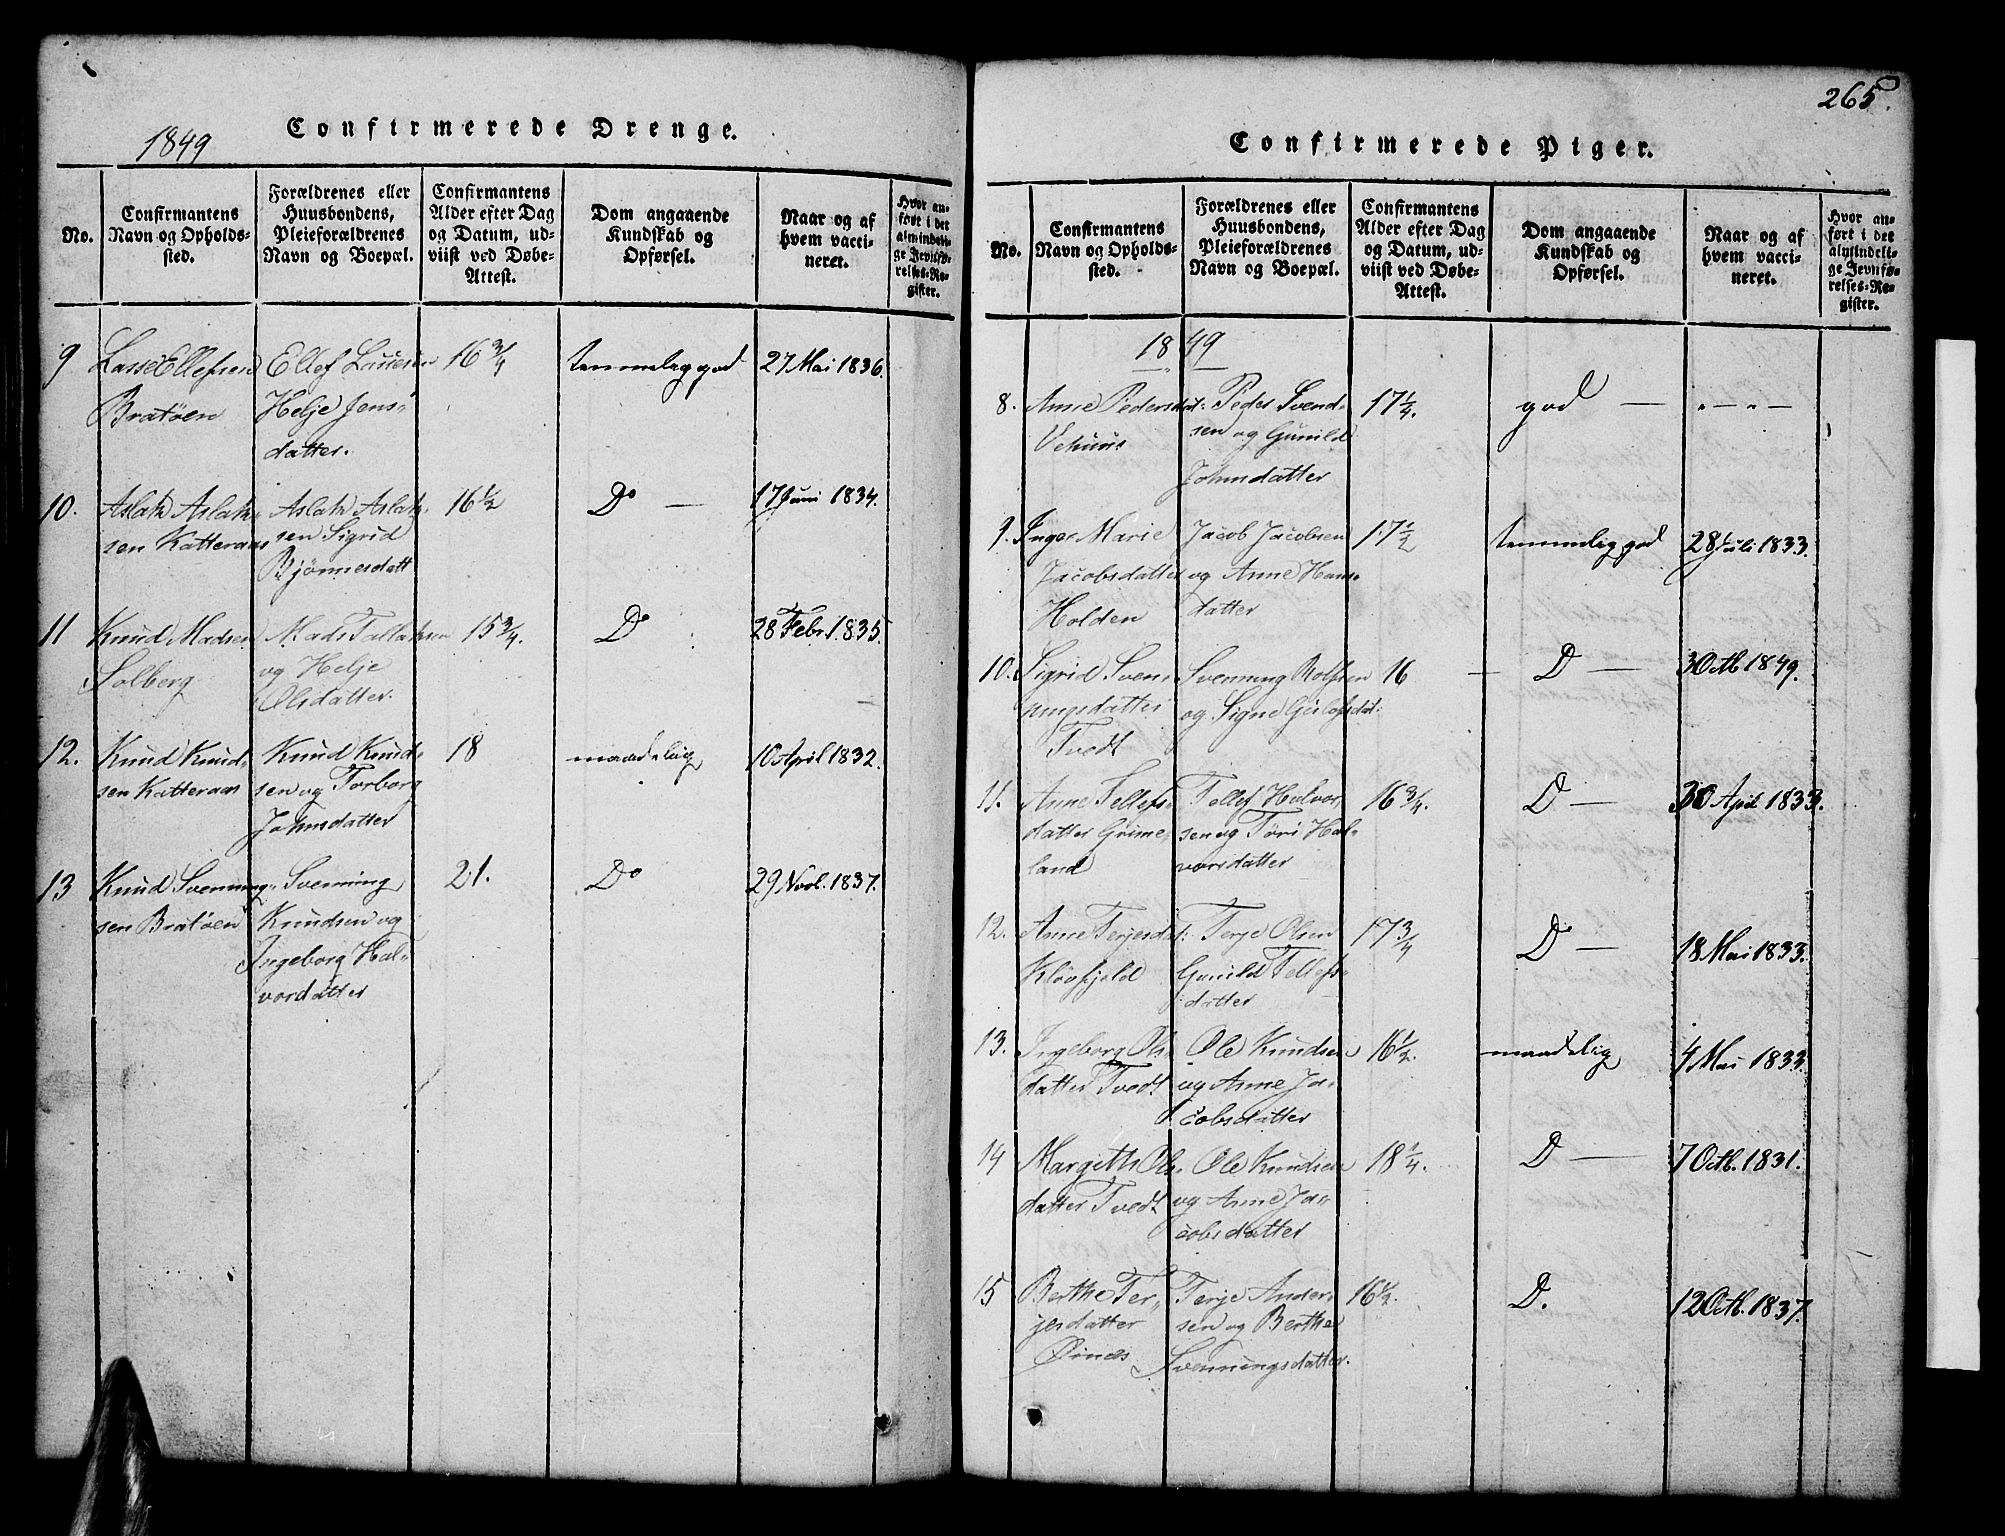 1849
Confirmerede Drenge.
No.
Confirmantens
Navn og Opholds-
sted.
Forældrenes eller
Huusbondens,
Pleieforældrenes
Navn og Boepæl.
Confirmantens
Alder efter Dag
og Datum, ud-
viist ved Døbe-
Attest.
Dom angaaende
Kundskab og
Opførsel.
Naar og af
hvem vacci-
neret.
Hvor an-
ført i det
almindeli-
ge Jevnfø-
relses-Re-
gister.
9
Lasse Ellefsen
Bratöen
Ellef
Helje Jens-
datter.
16 3/4
temmelig god
27 Mai 1836.
10.
Aslak Aslak-
sen Katteraas
Aslak Aslak-
sen Sigrid
Bjönnesdatt
16 1/2
Do —
17 Juni 1834.
11
Knud Madsen
Solberg
Mads Tallaksen
og Helje
Olsdatter.
15 3/4.
Do
28 Febr. 1835.
12.
Knud Knud-
sen Katteraas
Knud Knud-
sen og Torborg
Johnsdatter
18
maadelig
10 April 1832.
13
Knud Svenning-
sen Bratöen
Svenning
Knudsen og
Ingeborg Hal-
vordatter
21.
Do
29 Novl. 1837.
265.
Confirmerede Piger.
No.
Confirmantens
Navn og Opholds-
sted.
Forældrenes eller
Huusbondens,
Pleieforældrenes
Navn og Boepæl.
Confirmantens
Alder efter Dag
og Datum, ud-
viist ved Døbe-
Attest.
Dom angaaende
Kundskab og
Opførsel.
Naar og af
hvem vacci-
neret.
Hvor an-
ført i det
almindeli-
ge Jevnfø-
relses-Re-
gister.
1849
8.
Anne Pedersdat:
Vehuus
Peder Svend-
sen og Gunild
Johnsdatter
17 1/4.
god —
" — " —
9.
Inger Marie
Jacobsdatter
Holden
Jacob Jacobsen
og Anne Hans-
datter
17 1/2
temmelig god
28 Juli 1833.
10.
Sigrid Sven-
ningsdatter
Tvedt
Svenning Rolfsen
og Signe
16
— D —
3 Octb 1849.
11.
Anne Tellefs-
datter Grime-
land
Tellef Halvor-
sen og Töri Hal-
vorsdatter
16 3/4.
D —
30 April 1833.
12.
Anne Terjesdat:
Klövfjeld
Terje Olsen
Gunild Tellefs-
datter
17 3/4
D —
18 Mai 1833.
13.
Ingeborg Ols-
datter Tvedt
Ole Knudsen
og Anne Ja-
cobsdatter
16 1/2.
maadelig
4 Mai 1833
14
Margith Ols-
datter Tvedt
Ole Knudsen
og Anne Ja-
cobsdatter
18 1/4.
D —
7 Octb. 1831.
15
Berthe Ter-
jesdatter
Öinæs
Terje Ander-
sen og Berthe
Svenningsdatter.
16 1/2.
D.
12 Octb. 1837.